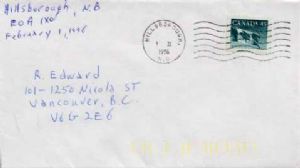 Hillsborough, N.B
E0A 1X0
February 1, 1996
HILLSBOROUGH
1996
N.B.
CANADA 45
R. Edward
101-1250 Nicola ST
Vancouver, B.C.
V6G 2E6